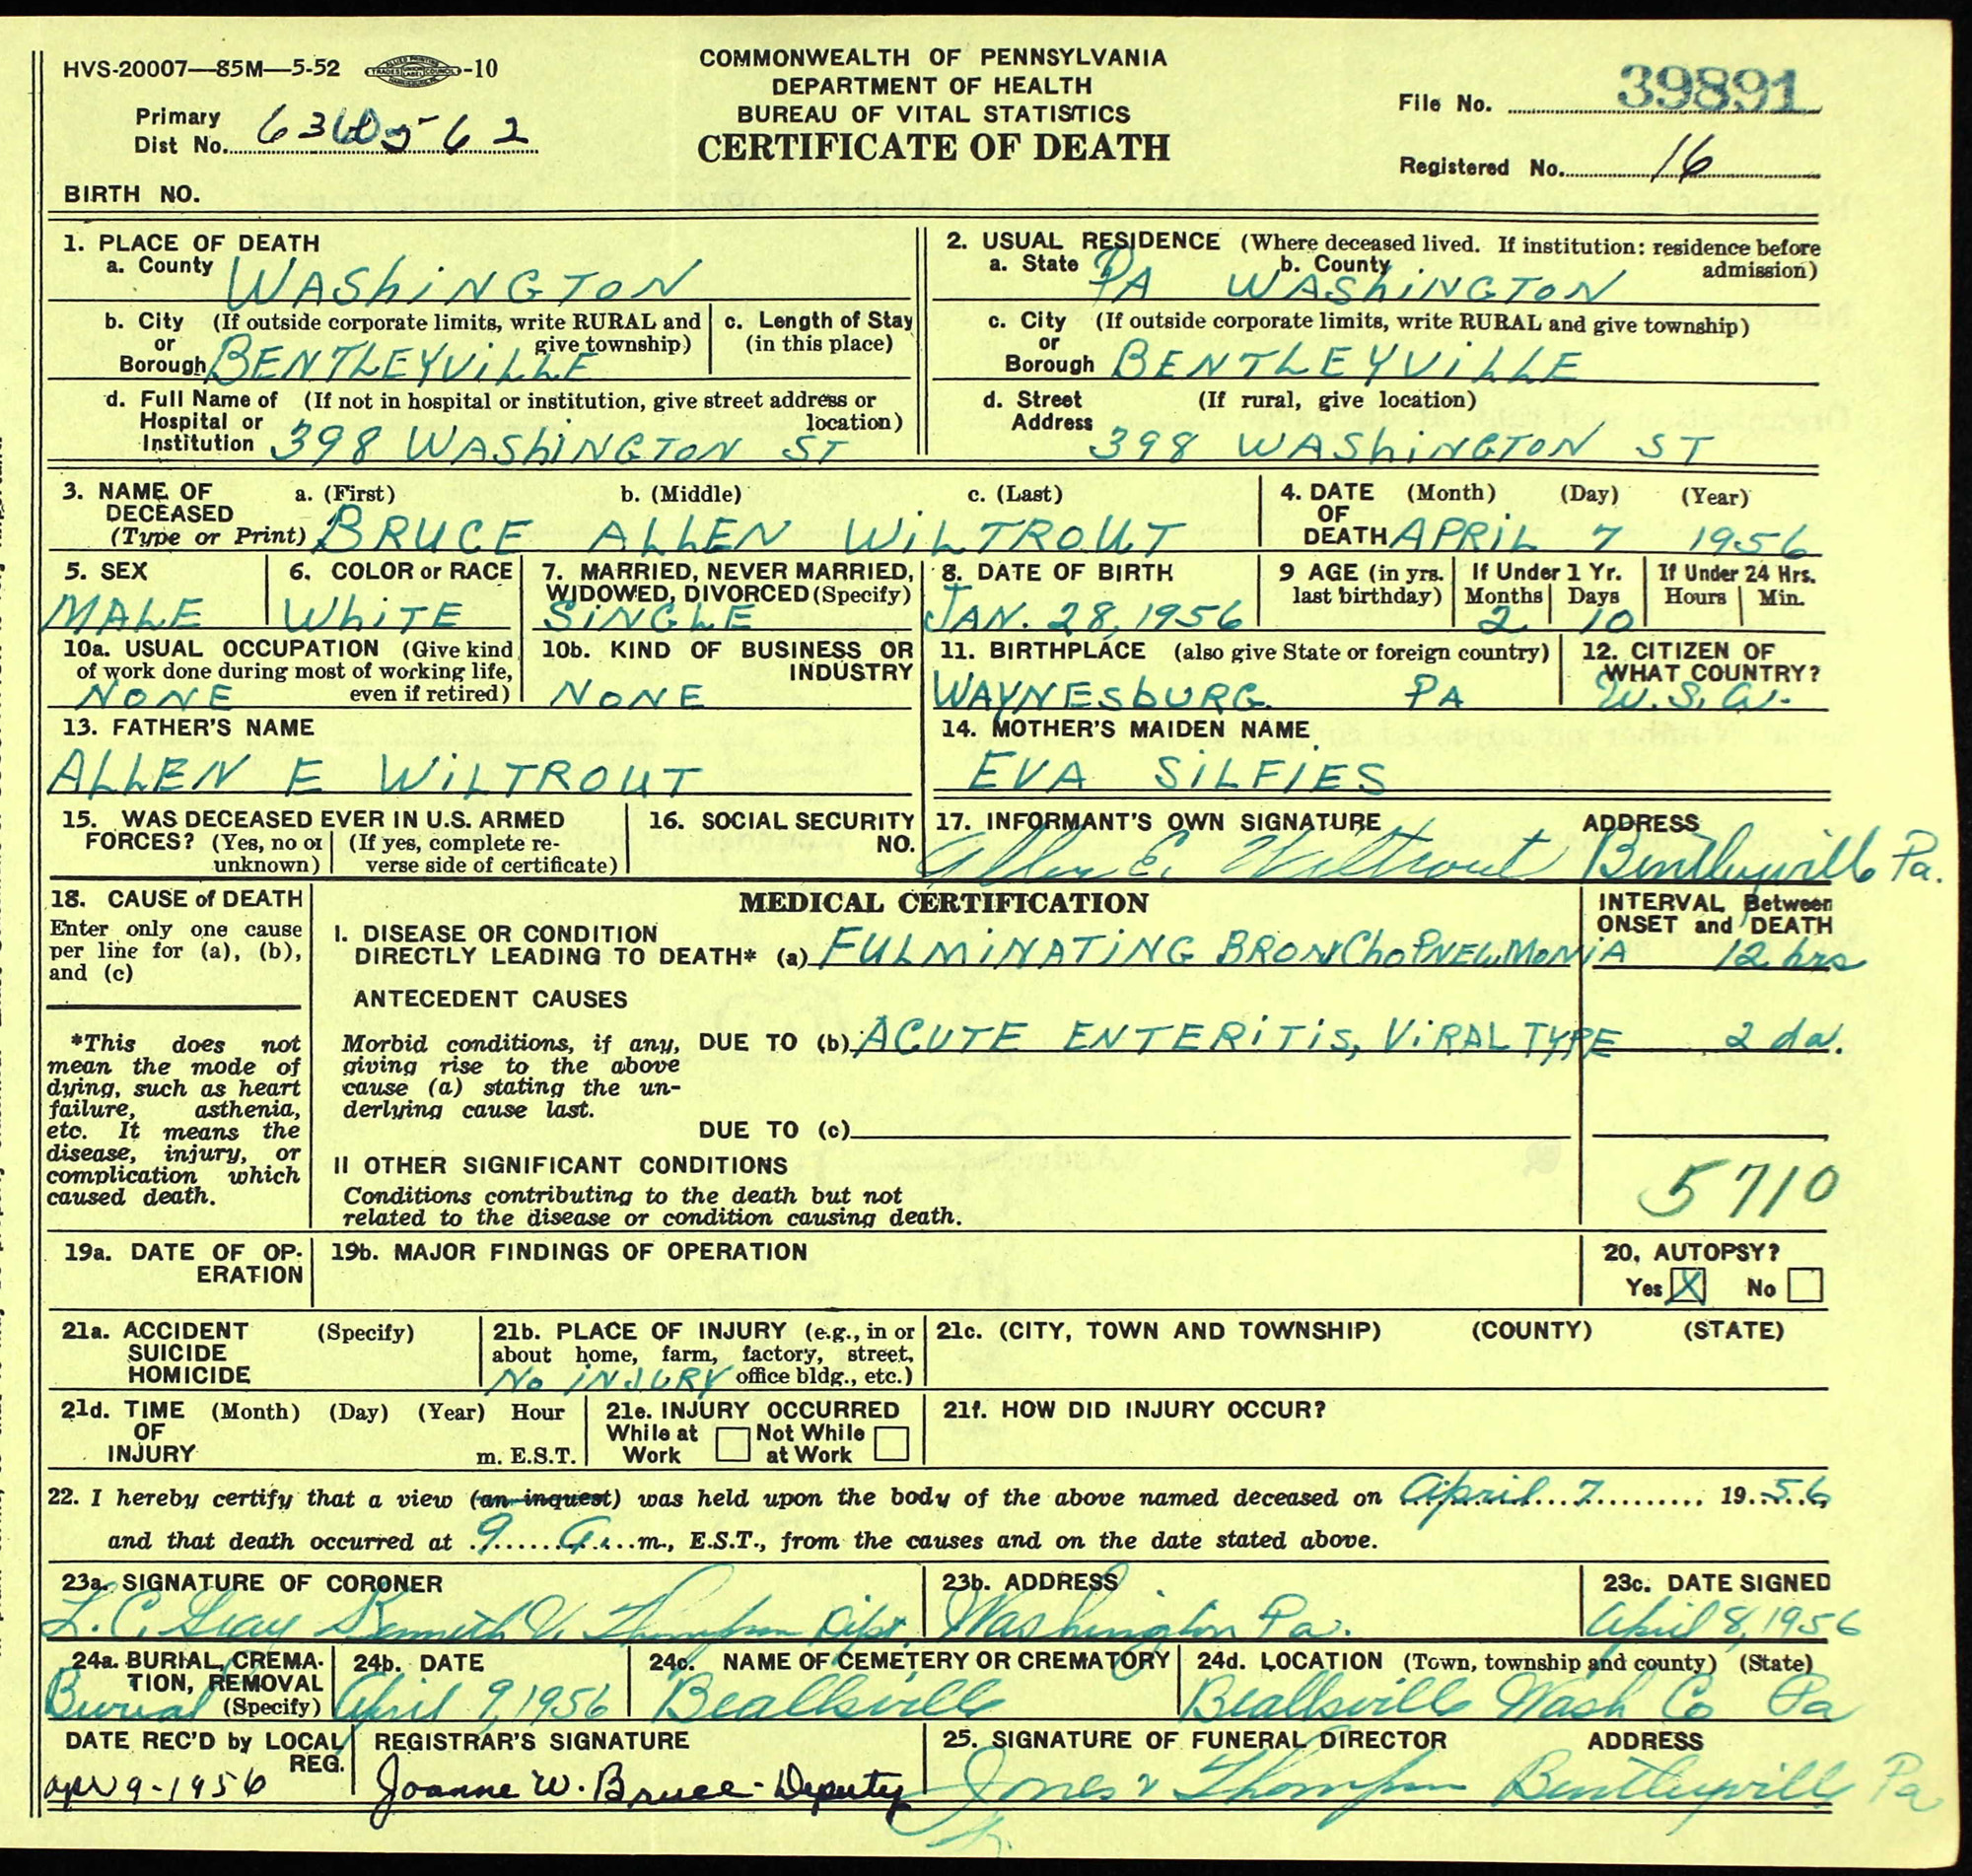 HVS-20007—85M—5-52 -10
COMMONWEALTH OF PENNSYLVANIA
DEPARTMENT OF HEALTH
BUREAU OF VITAL STATISTICS
CERTIFICATE OF DEATH
File No. 39891
Primary
Dist No.
Registered No. 16
BIRTH NO.
1. PLACE OF DEATH
a. County WAShiNGTON
b. City (If outside corporate limits, write RURAL and give township)
or
Borough BENTLEYViLLE
c. Length of Stay
(in this place)
d. Full Name of (If not in hospital or institution, give street address or location)
Hospital or
Institution 398 WAShiNGTON ST
2. USUAL RESIDENCE (Where deceased lived. If institution: residence before admission)
a. State PA b. County WAShiNGTON
c. City (If outside corporate limits, write RURAL and give township)
or
Borough BENTLEYViLLE
d. Street (If rural, give location)
Address 398 WAShiNGTON ST
3. NAME OF a. (First) b. (Middle) c. (Last)
DECEASED
(Type or Print) BRUCE ALLEN WiLTROUT
4. DATE (Month) (Day) (Year)
OF
DEATH APRiL 7 1956
5. SEX
MALE
6. COLOR or RACE
WhiTE
7. MARRIED, NEVER MARRIED,
WIDOWED, DIVORCED (Specify)
SiNGLE
8. DATE OF BIRTH
JAN. 28, 1956
9 AGE (in yrs.
last birthday)
If Under 1 Yr.
Months Days
2 10
If Under 24 Hrs.
Hours Min.
10a. USUAL OCCUPATION (Give kind
of work done during most of working life,
even if retired)
NONE
10b. KIND OF BUSINESS OR
INDUSTRY
NONE
11. BIRTHPLACE (also give State or foreign country)
WAYNESbURG PA
12. CITIZEN OF
WHAT COUNTRY?
U.S.A.
13. FATHER'S NAME
ALLEN E WiLTROUT
14. MOTHER'S MAIDEN NAME
EVA SiLFIES
15. WAS DECEASED EVER IN U.S. ARMED
FORCES? (Yes, no or unknown) (If yes, complete reverse side of certificate)
16. SOCIAL SECURITY
NO.
17. INFORMANT'S OWN SIGNATURE ADDRESS
Allen E. Wiltrout Bentleyville Pa.
18. CAUSE of DEATH
Enter only one cause
per line for (a), (b),
and (c)
*This does not
mean the mode of
dying, such as heart
failure, asthenia,
etc. It means the
disease, injury, or
complication which
caused death.
MEDICAL CERTIFICATION
INTERVAL Between
ONSET and DEATH
I. DISEASE OR CONDITION
DIRECTLY LEADING TO DEATH* (a) FULMiNATiNG BRONChoPNEUMONiA 12 hrs
ANTECEDENT CAUSES
Morbid conditions, if any,
giving rise to the above
cause (a) stating the un-
derlying cause last.
DUE TO (b) ACUTE ENTERiTiS, ViRAL TYPE 2 da.
DUE TO (c)
II OTHER SIGNIFICANT CONDITIONS
Conditions contributing to the death but not
related to the disease or condition causing death.
5710
19a. DATE OF OP-
ERATION
19b. MAJOR FINDINGS OF OPERATION
20. AUTOPSY?
Yes X No
21a. ACCIDENT (Specify)
SUICIDE
HOMICIDE
21b. PLACE OF INJURY (e.g., in or
about home, farm, factory, street,
office bldg., etc.)
No iNJURY
21c. (CITY, TOWN AND TOWNSHIP) (COUNTY) (STATE)
21d. TIME (Month) (Day) (Year) Hour
OF
INJURY m. E.S.T.
21e. INJURY OCCURRED
While at Work Not While at Work
21f. HOW DID INJURY OCCUR?
22. I hereby certify that a view (an inquest) was held upon the body of the above named deceased on April 7 19 56
and that death occurred at 9 A.m., E.S.T., from the causes and on the date stated above.
23a. SIGNATURE OF CORONER
L. C. Gray Kenneth V. Thompson Dept.
23b. ADDRESS
Washington Pa.
23c. DATE SIGNED
April 8, 1956
24a. BURIAL, CREMA-
TION, REMOVAL
(Specify)
Burial
24b. DATE
April 9, 1956
24c. NAME OF CEMETERY OR CREMATORY
Beallsville
24d. LOCATION (Town, township and county) (State)
Beallsville Wash Co Pa
DATE REC'D by LOCAL
REG.
apr 9-1956
REGISTRAR'S SIGNATURE
Joanne W. Bruce-Deputy
25. SIGNATURE OF FUNERAL DIRECTOR ADDRESS
Jones & Thompson Bentleyville Pa